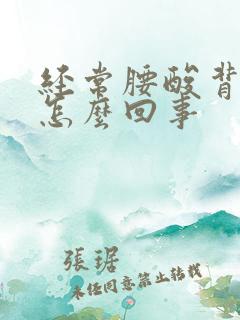 经常腰酸背
怎麽回事
張琚
未经同意禁止转载